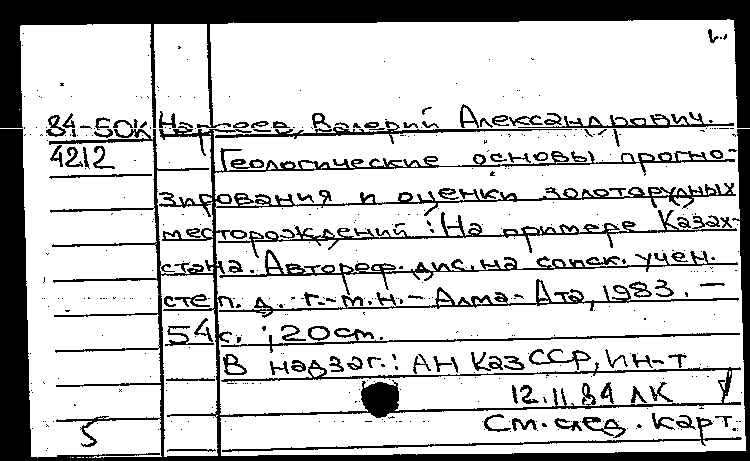 84-50К Нарсеев, Валерий Александрович.
4212 Геологические основы прогно-
зирования и оценки золоторудных
месторождений : На примере Казах-
стана. Автореф. дис. на соиск. учен.
степ. д. г.-м.н. - Алма-Ата, 1983. -
54 с. ; 20 см.
В надзаг.: АН КазССР, Ин-т
12.11.84 ЛК
5 См. след. карт.